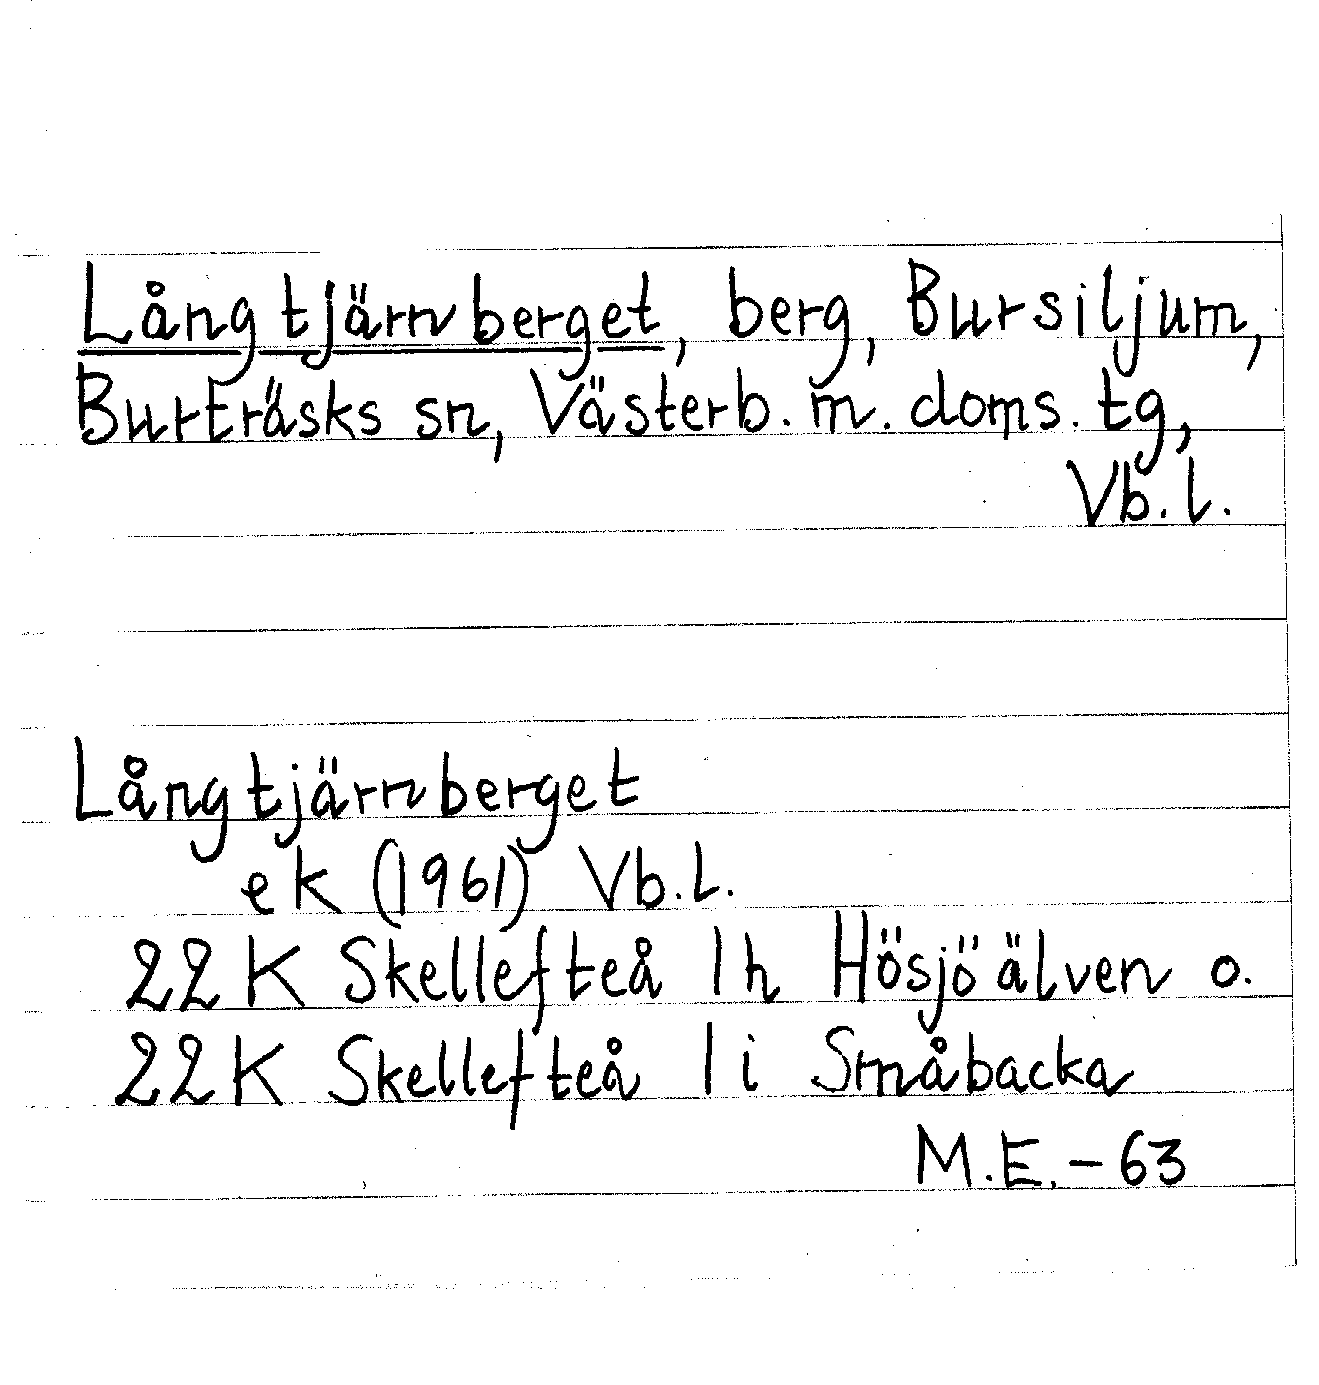 Långtjärnberget, berg, Bursiljum,
Burträsks sn, Västerb. m. doms. tg,
Vb. l.
Långtjärnberget
ek (1961) Vb. l.
22 K Skellefteå 1 h Hösjöälven o.
22 K Skellefteå 1 i Småbacka
M.E. - 63